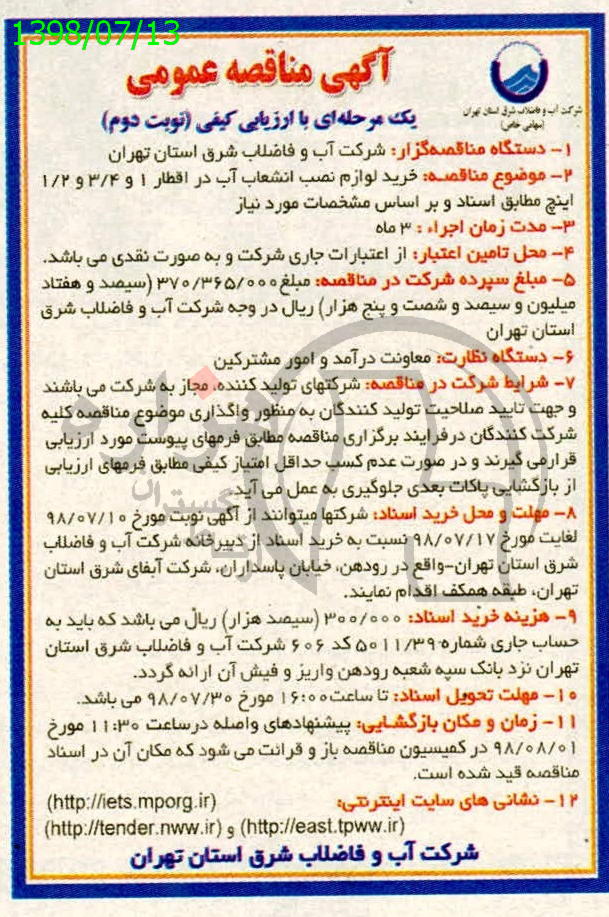 1398/07/13
آگهی مناقصه عمومی
شرکت آب و فاضلاب شرق استان تهران
(سهامی خاص)
یک مرحله‌ای با ارزیابی کیفی (نوبت دوم)
۱- دستگاه مناقصه‌گزار: شرکت آب و فاضلاب شرق استان تهران
۲- موضوع مناقصه: خرید لوازم نصب انشعاب آب در اقطار ۱ و ۳/۴ و ۱/۲
اینچ مطابق اسناد و بر اساس مشخصات مورد نیاز
۳- مدت زمان اجراء : ۳ ماه
۴- محل تامین اعتبار: از اعتبارات جاری شرکت و به صورت نقدی می باشد.
۵- مبلغ سپرده شرکت در مناقصه: مبلغ ۳۷۰/۳۶۵/۰۰۰ (سیصد و هفتاد
میلیون و سیصد و شصت و پنج هزار) ریال در وجه شرکت آب و فاضلاب شرق
استان تهران
۶- دستگاه نظارت: معاونت درآمد و امور مشترکین
۷- شرایط شرکت در مناقصه: شرکتهای تولید کننده، مجاز به شرکت می باشند
و جهت تایید صلاحیت تولید کنندگان به منظور واگذاری موضوع مناقصه کلیه
شرکت کنندگان درفرایند برگزاری مناقصه مطابق فرمهای پیوست مورد ارزیابی
قرارمی گیرند و در صورت عدم کسب حداقل امتیاز کیفی مطابق فرمهای ارزیابی
از بازگشایی پاکات بعدی جلوگیری به عمل می آید.
۸- مهلت و محل خرید اسناد: شرکتها میتوانند از آگهی نوبت مورخ ۹۸/۰۷/۱۰
لغایت مورخ ۹۸/۰۷/۱۷ نسبت به خرید اسناد از دبیرخانه شرکت آب و فاضلاب
شرق استان تهران-واقع در رودهن، خیابان پاسداران، شرکت آبفای شرق استان
تهران، طبقه همکف اقدام نمایند.
۹- هزینه خرید اسناد: ۳۰۰/۰۰۰ (سیصد هزار) ریال می باشد که باید به
حساب جاری شماره ۵۰۱۱/۳۹ کد ۶۰۶ شرکت آب و فاضلاب شرق استان
تهران نزد بانک سپه شعبه رودهن واریز و فیش آن ارائه گردد.
۱۰- مهلت تحویل اسناد: تا ساعت۱۶:۰۰ مورخ ۹۸/۰۷/۳۰ می باشد.
۱۱- زمان و مکان بازگشایی: پیشنهادهای واصله درساعت ۱۱:۳۰ مورخ
۹۸/۰۸/۰۱ در کمیسیون مناقصه باز و قرائت می شود که مکان آن در اسناد
مناقصه قید شده است.
۱۲- نشانی های سایت اینترنتی: (http://iets.mporg.ir)
(http://east.tpww.ir) و (http://tender.nww.ir)
شرکت آب و فاضلاب شرق استان تهران